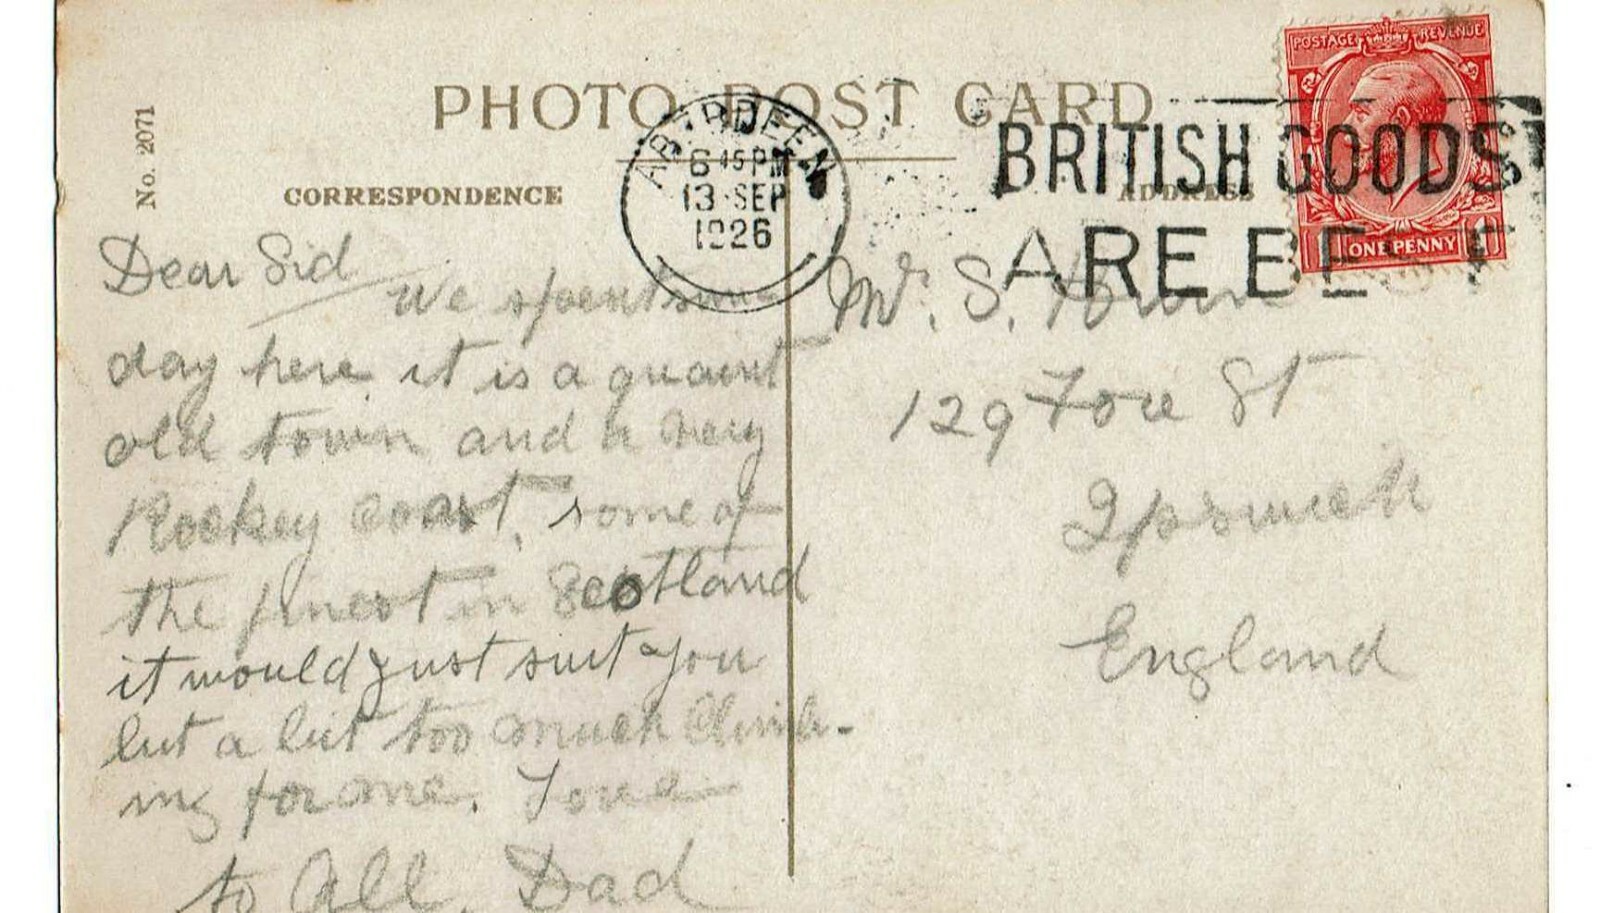 No. 2071
PHOTO POST CARD
CORRESPONDENCE
ADDRESS
ABERDEEN
6 45 PM
13 SEP
1926
BRITISH GOODS
ARE BEST
POSTAGE REVENUE
1 ONE PENNY 1
Dear Sid
We spent
day here it is a quaint
old town and a very
Rockey coast, some of
the finest in Scotland
it would just suit you
but a bit too much Climb-
ing for me. Love
to All. Dad
Mr. S.
129 Fore St
Ipswich
England